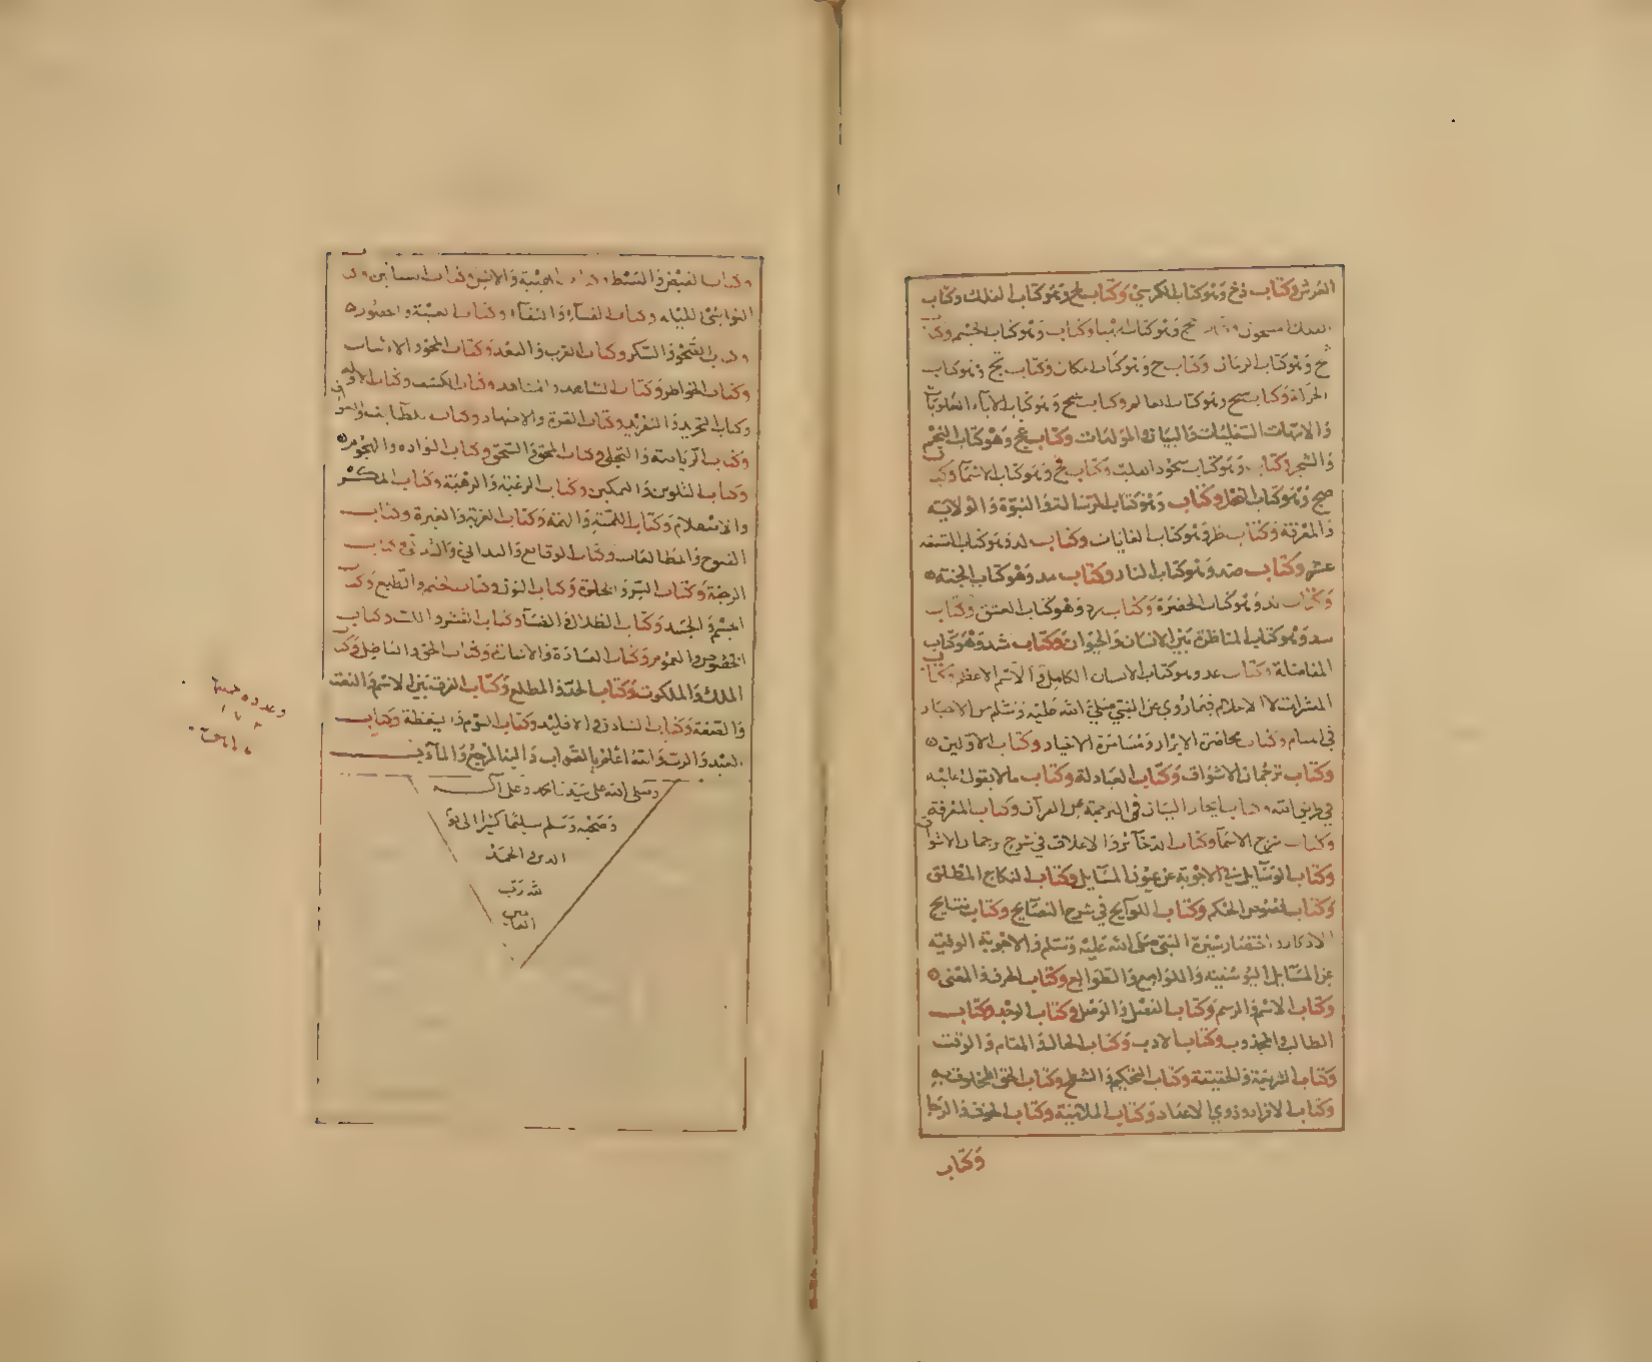 العرش وكتاب دخ وهو كتاب الكرسي وكتاب لح وهو كتاب الفلك وكتاب
وهو كتاب الهبا وكتاب وهو كتاب الجسم وكتا
ب خ وهو كتاب الزمان وكتاب ح وهو كتاب المكان وكتاب بح وهو كتاب
الحركة وكتاب سح وهو كتاب العالم وكتاب بح وهو كتاب الآباء العلويات
والامهات السفليات والبيان والمولدات وكتاب عج وهو كتاب النجم
والشجر وكتاب وهو كتاب سجود القلب وكتاب وهو كتاب الاسما وكتا
ب صح وهو كتاب النحل وكتاب وهو كتاب الرسالة والنبوة والولاية
والمعرفة وكتاب ظر وهو كتاب الغايات وكتاب لد وهو كتاب التسعة
عشر وكتاب صد وهو كتاب النار وكتاب مد وهو كتاب الجنة
وكتاب ند وهو كتاب الحضرة وكتاب وهو كتاب العشق وكتاب
سد وهو كتاب المناظرة بين الانسان والحيوان وكتاب شد وهو كتاب
المفاضلة وكتاب عد وهو كتاب الانسان الكامل والاسم الاعظم وكتا
ب المبشرات لا الاحلام فيما روي عن النبي صلى الله عليه وسلم من الاخبار
في المنام وكتاب محاضرة الابرار ومسامرة الاخيار وكتاب الاولين
وكتاب ترجمان الاشواق وكتاب العبادلة وكتاب ما لا يقول عليه
في طريق الله وكتاب ايجاز البيان في الترجمة عن القرآن وكتاب المعرفة
وكتاب شرح الاسما وكتاب الذخائر والاعلاق في شرح ترجمان الاشواق
وكتاب الوسايل في الاجوبة عن عيون المسايل وكتاب النكاح المطلق
وكتاب فصوص الحكم وكتاب اللوايح في شرح النصايح وكتاب نتايج
الاذكار واختصار سيرة النبي صلى الله عليه وسلم والاجوبة
عن المسايل اليوسفية واللوامع والطوالع وكتاب الحرف والمعنى
وكتاب الاسم والرسم وكتاب الفصل والوصل وكتاب الوجد وكتاب
الطالب والمجذوب وكتاب الادب وكتاب الحال والمقام والوقت
وكتاب الشريعة والحقيقة وكتاب التحكيم والشطح وكتاب الحق المخلوق به
وكتاب الافراد وذوي الاعداد وكتاب الملامتية وكتاب الخوف والرجا
وكتاب
وكتاب القبض والبسط وكتاب الهيبة والانس وكتاب
النواشئ الليليه وكتاب الفناء والبقاء وكتاب الغيبة والحضور
وكتاب الصحو والسكر وكتاب القرب والبعد وكتاب المحو والاثبات
وكتاب الخواطر وكتاب الشاهد والمشاهد وكتاب الكشف وكتاب الوله
وكتاب التجريد والتفريد وكتاب العزة والاجتهاد وكتاب اللطائف والعوارف
وكتاب الرياضة والتجلي وكتاب المحق والسحق وكتاب البواده والهجوم
وكتاب التلوين والتمكين وكتاب الرغبة والرهبة وكتاب المكر
والاصطلام وكتاب اللمة والهمة وكتاب العزة والغيرة وكتاب
الفتوح والمطالعات وكتاب الوقائع والتداني والتدلي وكتاب
الرجعة وكتاب الستر والخلوة وكتاب النون وكتاب الختم والطبع وكتا
ب الجسم والجسد وكتاب الظلال والضياء وكتاب القشر واللب وكتاب
الخصوص والعموم وكتاب العبارة والاشارة وكتاب الحق والباطل وكتا
ب الملك والملكوت وكتاب الحد والمطلع وكتاب الفرق بين الاسم والنعت
والصفة وكتاب السادن والاقليد وكتاب النوم واليقظة وكتاب
العبد والرب والله اعلم بالصواب واليه المرجع والمآب
وصلى الله على سيدنا محمد وعلى آله
وصحبه وسلم تسليما كثيرا الى يوم
الدين والحمد
لله رب
العالمين